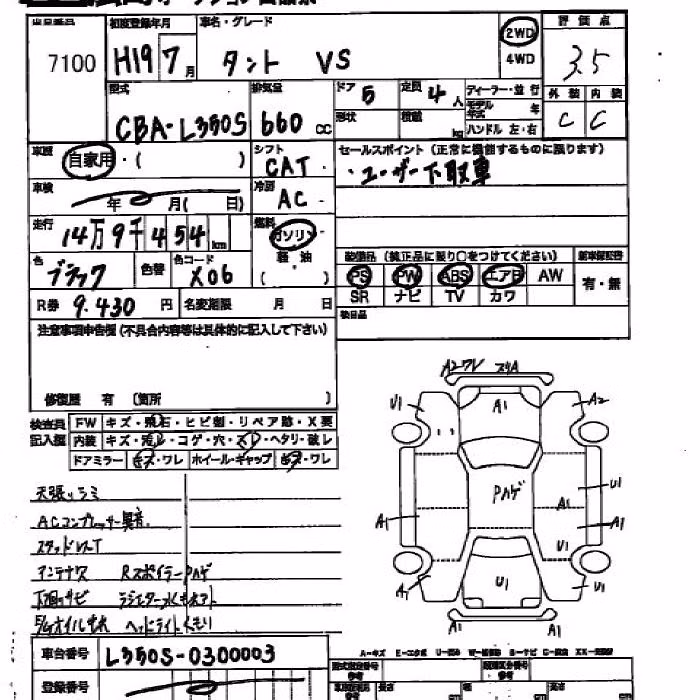 初度登録年月 車名・グレード 評価点
7100 H19 7月 タント VS 2WD 4WD 3.5
型式 排気量 ドア 5 定員 4人 ディーラー・並行
外装 内装
CBA-L350S 660cc 形状 積載 kg モデル年式 年 C C
ハンドル 左・右
車歴 自家用・( ) シフト CAT セールスポイント(正常に機能するものに限ります)
・ユーザー下取車
車検 年 月( 日) 冷房 AC
走行 14万9千454km 燃料 ガソリン
軽油
( )
色 ブラック 色替 色コード X06
装備品(純正品に限り○をつけてください)
PS PW ABS エアB AW 有・無
SR ナビ TV カワ
R券 9.430円 名変期限 月 日
後日品
注意事項申告欄(不具合内容等は具体的に記入して下さい)
修復歴 有 (箇所 )
検査員記入欄 FW キズ・飛石・ヒビ割・リペア跡・X要
内装 キズ・汚れ・コゲ・穴・スレ・ヘタリ・破レ
ドアミラー キズ・ワレ ホイール・キャップ キズ・ワレ
天張りシミ
ACコンプレッサー異音
スタッドレスT
アンテナ欠 RスポイラーPハゲ
下廻りサビ
ヘッドライトくもり
A2ワレ スリA
U1 A1 A2
Pハゲ
A1 A1 U1 A1
U1
A1 U1 U1
A1 A1
車台番号 L350S-0300003
登録番号